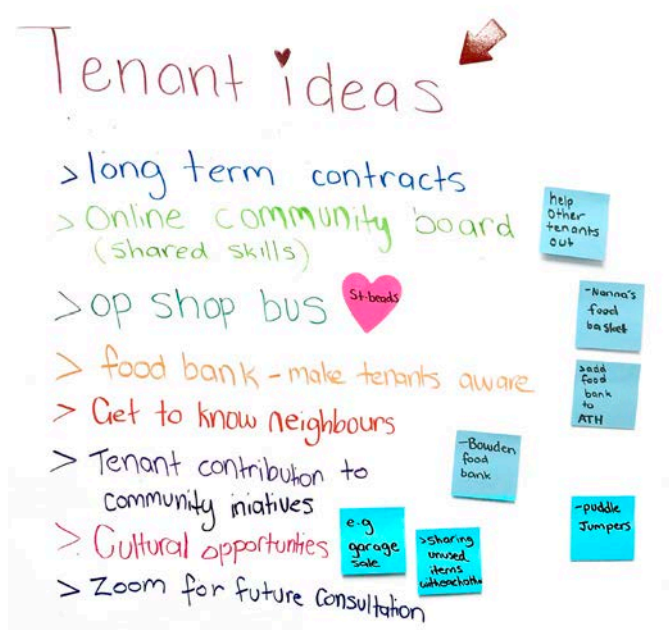 Tenant ideas
> long term contracts
> Online community board
(shared skills)
help
other
tenants
out
> op shop bus
St-beads
-Nanna's
food
basket
> food bank - make tenants aware
>add
food
bank
to
ATH
> Get to know neighbours
> Tenant contribution to
community iniatives
-Bowden
food
bank
> Cultural opportunties
e.g
garage
sale
>Sharing
unused
items
-puddle
Jumpers
> Zoom for future consultation